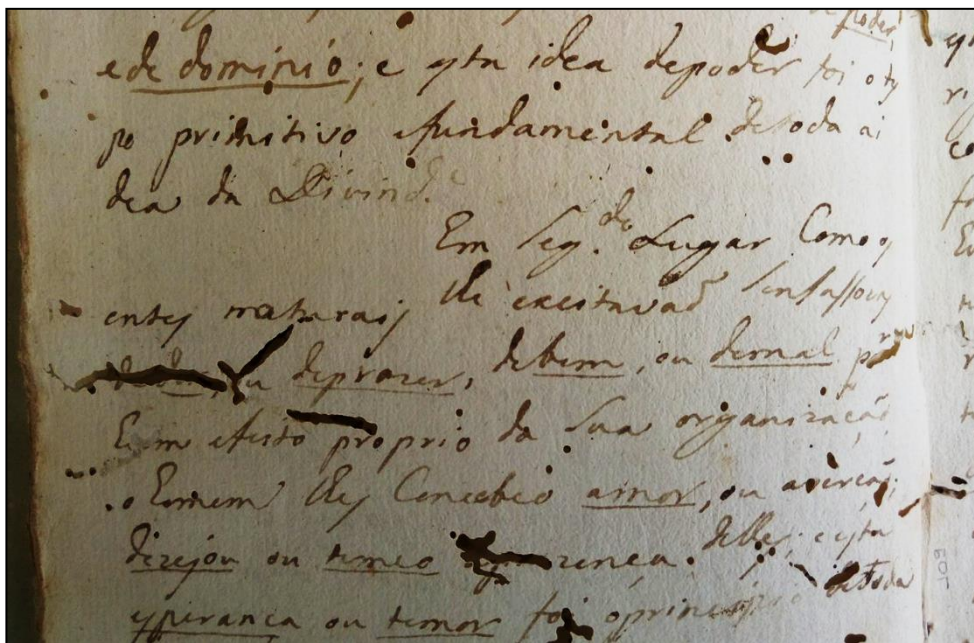 poder,
e de dominio; e ysta idea depoder foi oty
po primitivo efundamental detoda ai
dea da Divind.e
Em Seg.do Lugar Como os
entes naturais lhe excitavaõ Sensassoens
ou deprazer, debem, ou demal por
hum efeito proprio da Sua organizaçaõ
o homem lhes Concebeo amor, ou aversaõ,
dizejou ou temeo prezenca. delles; e ysta
yperanca ou temor foi oprincipio detoda